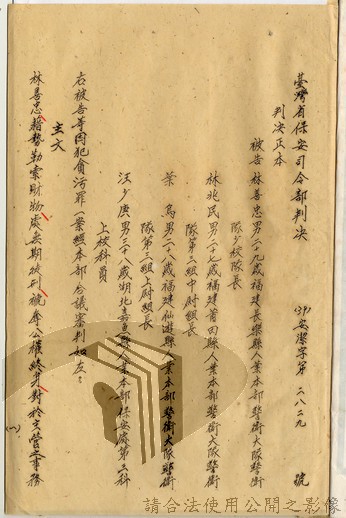 臺灣省保安司令部判決 (39)安潔字第二八二九號
判決正本
被告 林善忠 男二九歲福建長樂縣人業本部警衛大隊警衛
隊少校隊長
林兆民 男二十七歲福建莆田縣人業本部警衛大隊警衛
隊第三組中尉組長
葉 為 男二十八歲福建仙遊縣人業本部警衛大隊警衛
隊第三組上尉組長
汪少庚 男三十八歲湖北嘉魚縣人業本部保安處第三科
上校科員
右被告等因犯貪污罪一案經本部合議審判如左:
主文
林善忠藉勢勒索財物處無期徒刑褫奪公權終身對於文營之事務
(一)
請合法使用公開之影像